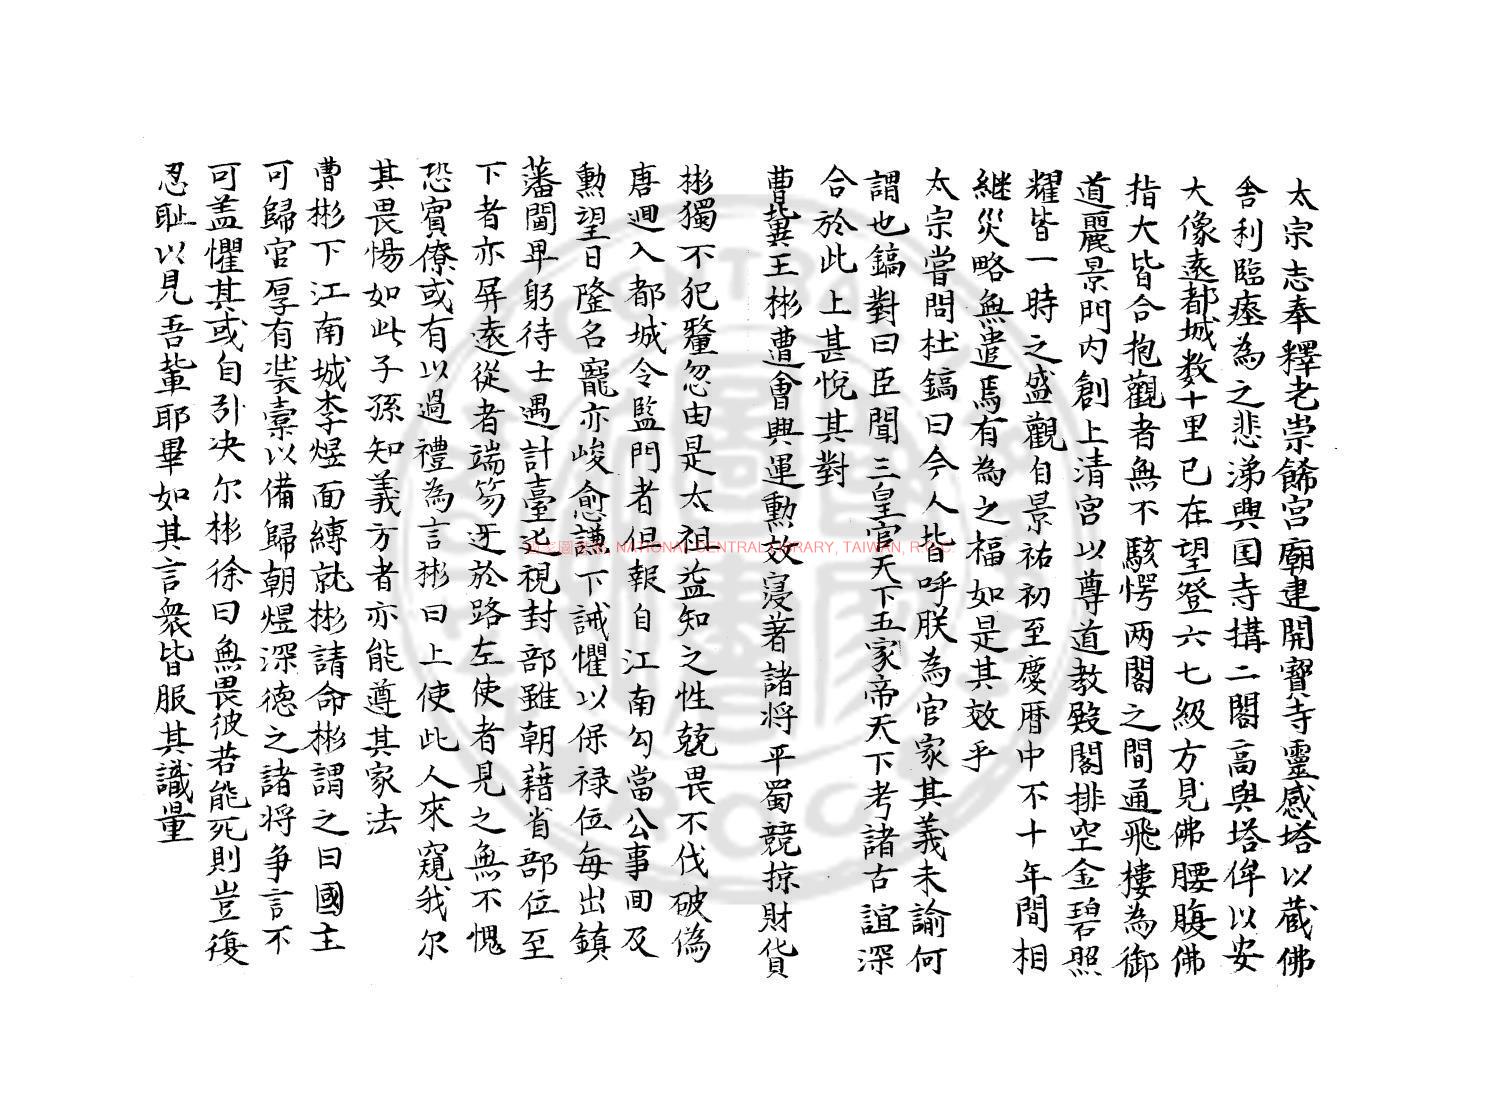 太宗志奉釋老崇餙宮廟建開寶寺靈感塔以藏佛
舍利臨瘞為之悲涕興国寺搆二閣高與塔侔以安
大像逺都城数十里已在望登六七級方見佛腰腹佛
指大皆合抱觀者無不駭愕两閣之間通飛樓為御
道麗景門内創上清宮以尊道教殿閣排空金碧照
耀皆一時之盛觀自景祐初至慶曆中不十年間相
継災略無遣焉有為之福如是其效乎
太宗嘗問杜鎬曰今人皆呼朕為官家其義未諭何
謂也鎬對曰臣聞三皇官天下五家帝天下考諸古誼深
合於此上甚悅其對
曹冀王彬遭會興運勲效寖著諸将平蜀競掠財貨
彬獨不犯釐忽由是太祖益知之性兢畏不伐破偽
唐迴入都城令監門者但報自江南勾當公事回及
勲望日隆名寵亦峻愈謙下誡懼以保禄位每出鎮
藩閫卑躬待士遇計臺巡視封部雖朝藉省部位至
下者亦屏逺從者端笏迓於路左使者見之無不愧
恐賓僚或有以過禮為言彬曰上使此人來窺我尔
其畏惕如此子孫知義方者亦能遵其家法
曹彬下江南城李煜面縛就彬請命彬謂之曰國主
可歸宮厚有装橐以備歸朝煜深德之諸将争言不
可盖懼其或自引决尔彬徐曰無畏彼若能死則豈復
忍耻以見吾輩耶畢如其言衆皆服其識量
NATIONAL CENTRAL LIBRARY, TAIWAN, R.O.C.